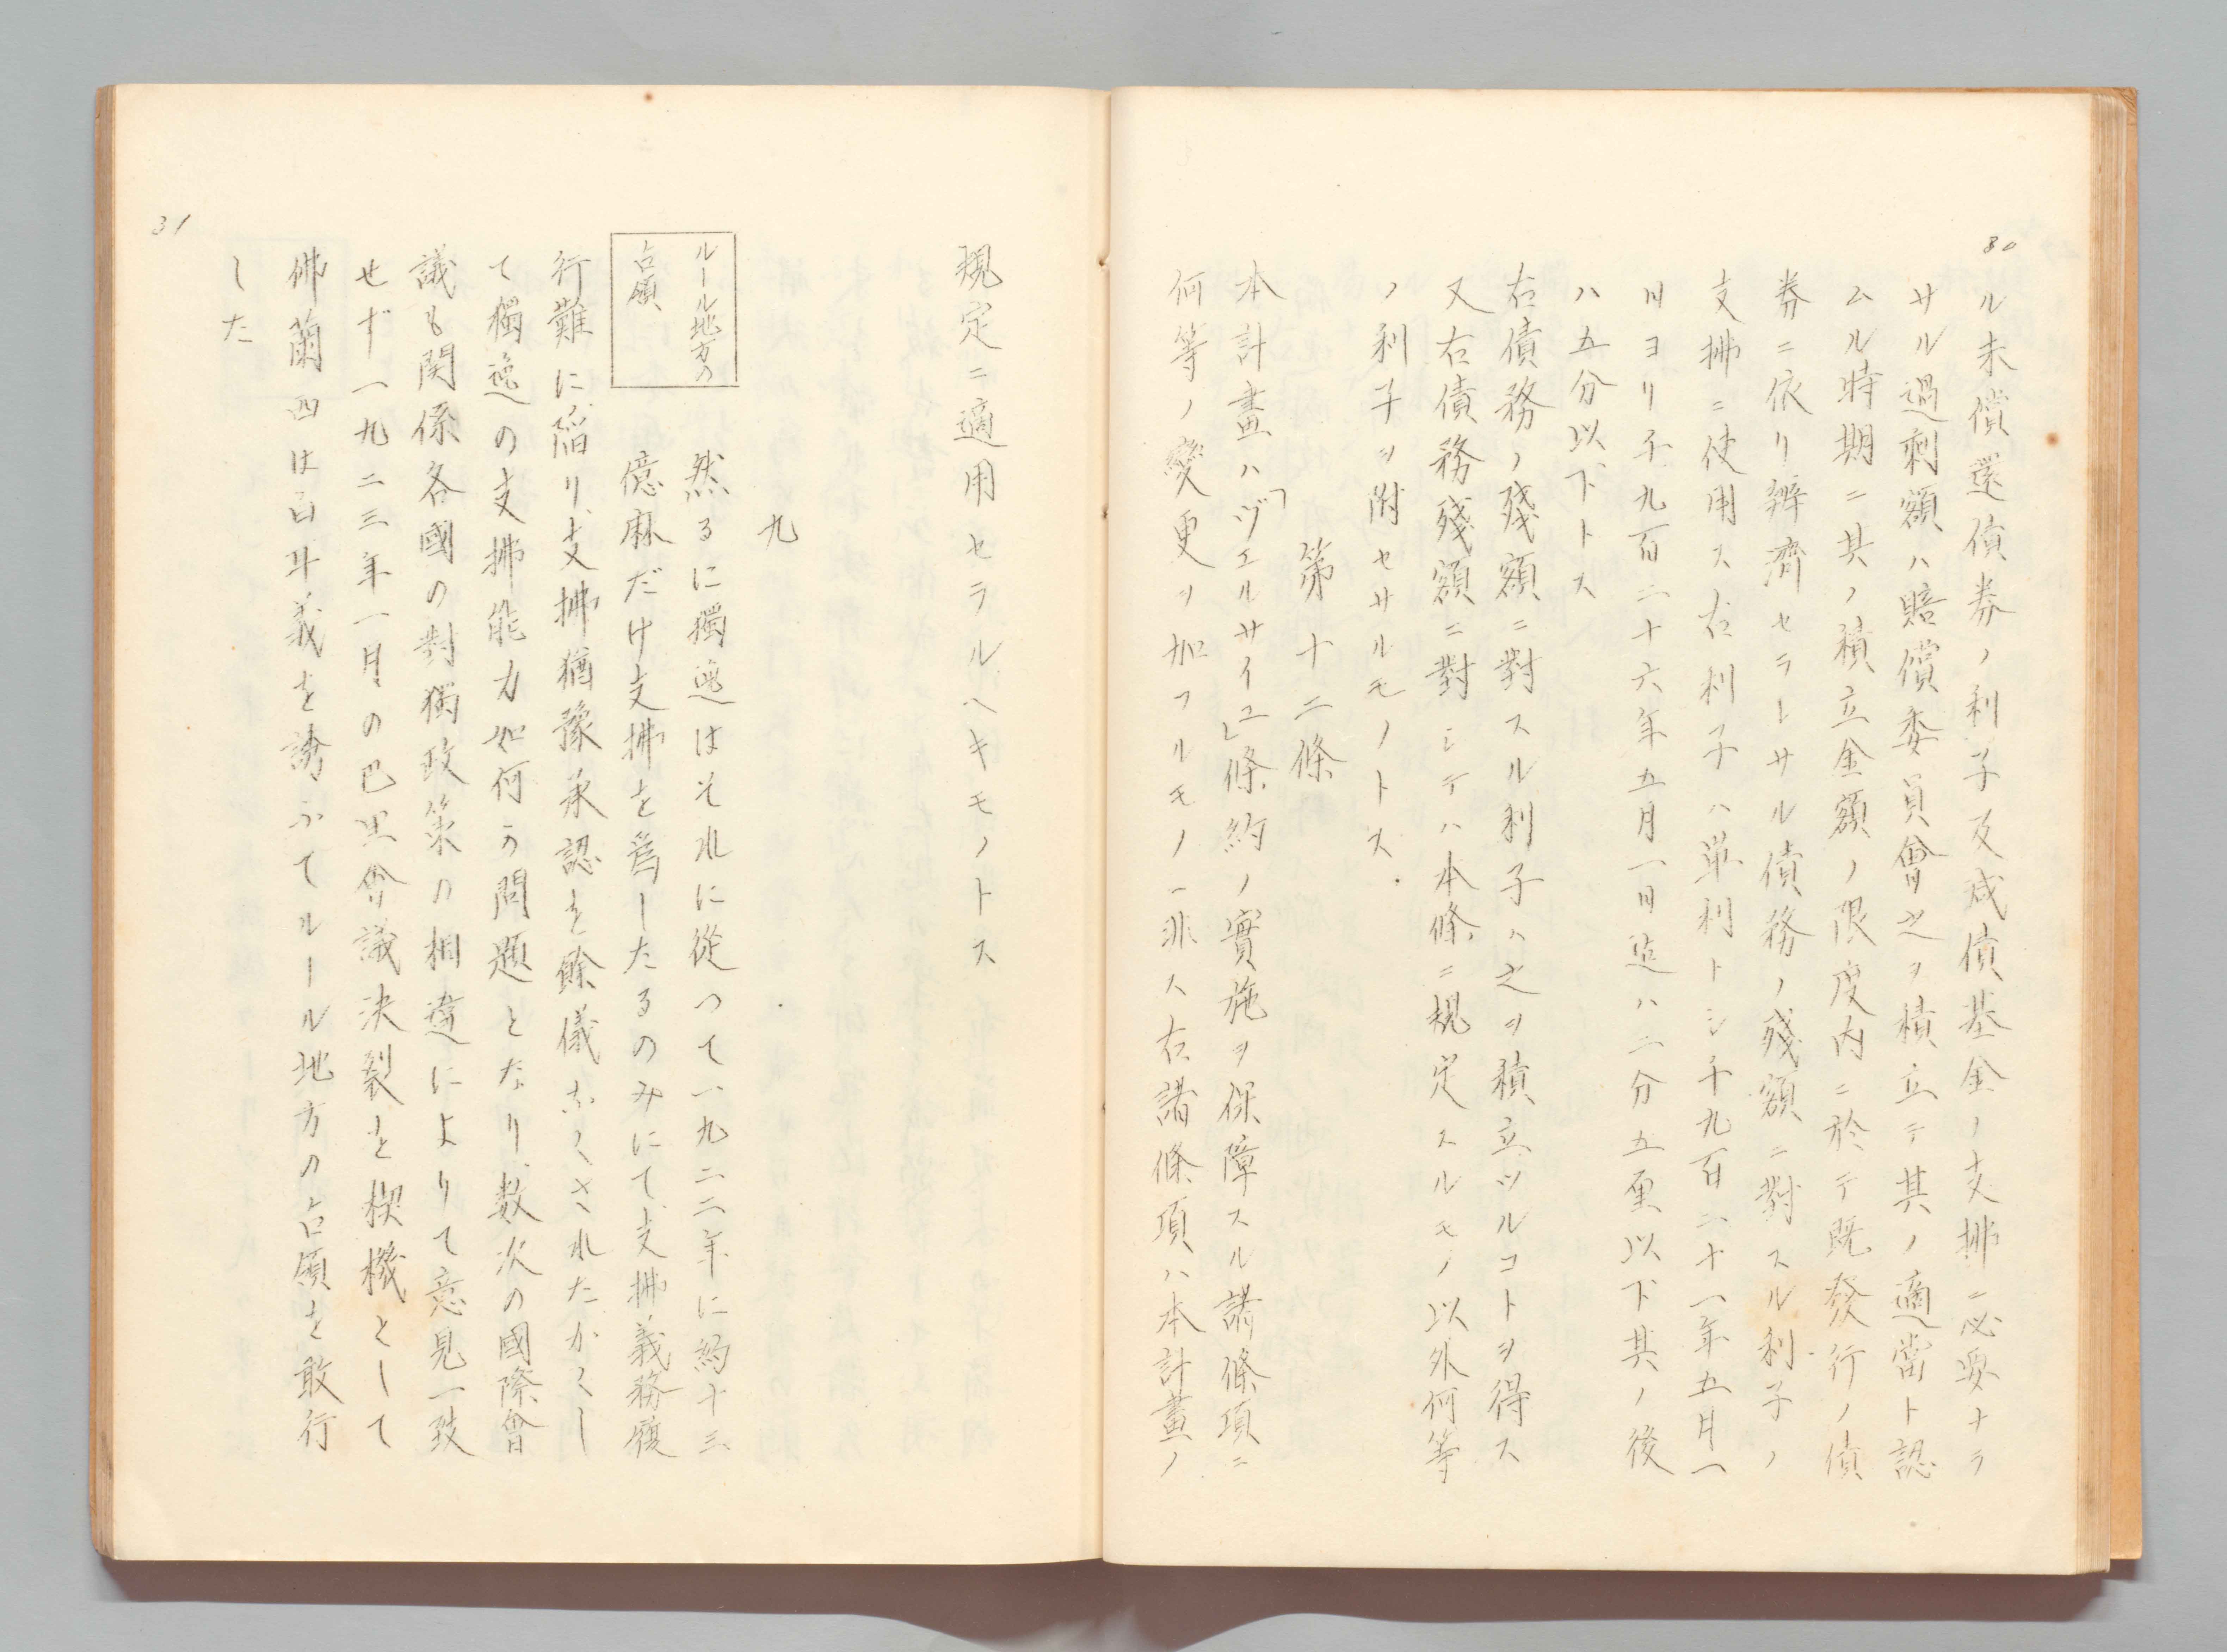 80
ル未償還債券ノ利子及減債基金ノ支拂ニ必要ナラ
サル過剰額ハ賠償委員會之ヲ積立テ其ノ適當ト認
ムル時期ニ其ノ積立金額ノ限度内ニ於テ既發行ノ債
券ニ依リ辨濟セラレサル債務ノ殘額ニ對スル利子ノ
支拂ニ使用ス右利子ハ單利トシ千九百二十一年五月一
日ヨリ千九百二十六年五月一日迄ハ二分五厘以下其ノ後
ハ五分以下トス
右債務ノ殘額ニ對スル利子ハ之ヲ積立ツルコトヲ得ス
又右債務殘額ニ對シテハ本條ニ規定スルモノ以外何等
ノ利子ヲ附セサルモノトス
第十二條
本計畫ハ「ヴェルサイユ」條約ノ實施ヲ保障スル諸條項ニ
何等ノ變更ヲ加フルモノニ非ス右諸條項ハ本計畫ノ
規定ニ適用セラルヘキモノトス
九
ルール地方の
占領
然るに獨逸はそれに從つて一九二二年に約十三
億麻だけ支拂を爲したるのみにて、支拂義務履
行難に陷り、支拂猶豫承認を餘儀なくされたかくし
て獨逸の支拂能力如何の問題となり、数次の國際會
議も関係各國の對獨政策の相違によりて意見一致
せず一九二三年一月の巴里會議決裂を楔機として
佛蘭西は白耳義を誘ふてルール地方の占領を敢行
した
31